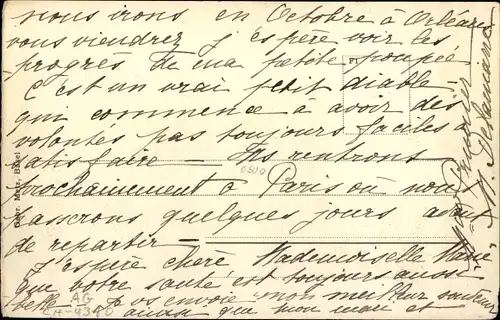 nous irons en Octobre à Orléans
vous viendrez j'espère voir les
progrès de ma petite poupée
C'est un vrai petit diable
qui commence à avoir des
volontés pas toujours faciles à
satisfaire — Ils rentrons
prochainement à Paris où nous
passerons quelques jours avant
de repartir —
J'espère chère Mademoiselle Marie
que votre santé est toujours aussi
belle je vs envoie mon meilleur souvenir
ainsi que mon mari et
AG